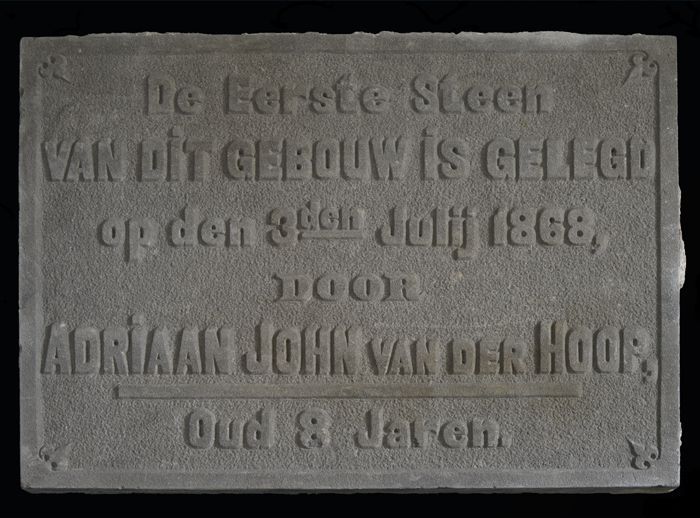 De Eerste Steen
VAN DiT GEBOUW iS GELEGD
op den 3den Julij 1868,
DOOR
ADRiAAN JOHN VAN DER HOOP,
Oud 8 Jaren.